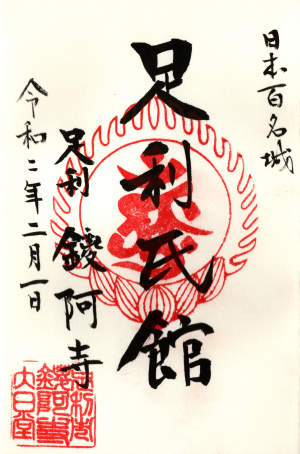 日本百名城
足利氏館
足利 鑁阿寺
令和二年二月一日
足利市
鑁阿寺
大日堂